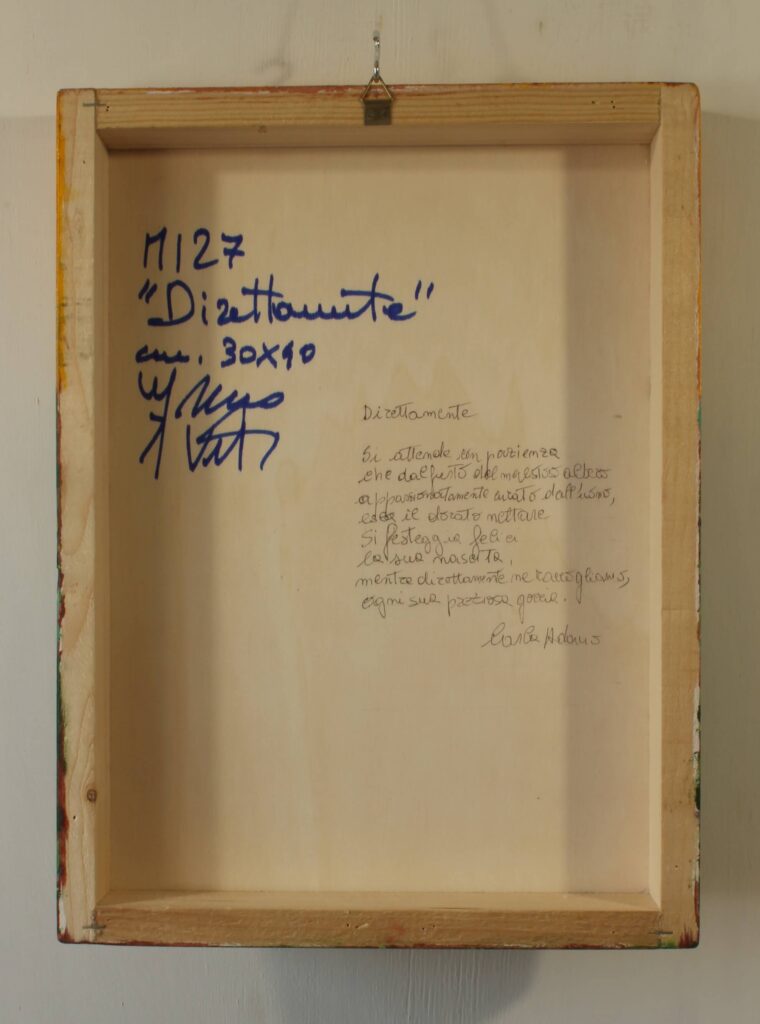 M127
"Direttamente"
cm. 30x40
Direttamente
Si attende con pazienza
che dal fusto del maestoso albero
appassionatamente curato dall'uomo,
esca il dorato nettare
Si festeggia felici
la sua nascita,
mentre direttamente ne raccogliamo,
ogni sua preziosa goccia.
Carla Adamo